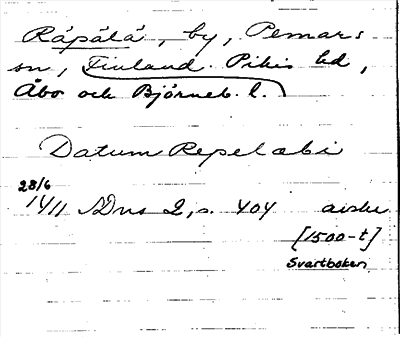 Räpälä, by, Pemars
sn, Finland. Pikis hd,
Åbo och Björneb. l.
Datum Repelæbi
28/6
1411 SDns 2, s. 404 avskr
[1500-t]
Svartboken